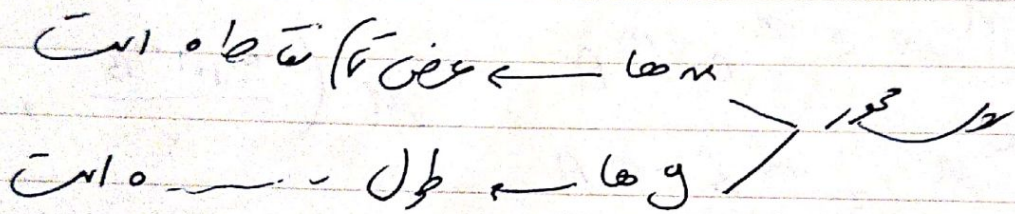 روی محور
x ها ← عرض تمام نقاط ۰ است
y ها ← طول ـ ـــ ۰ است